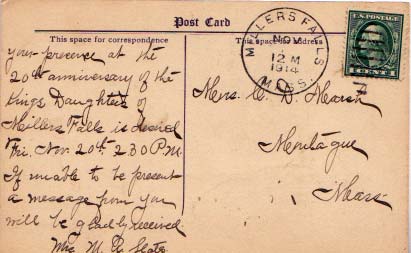 Post Card
This space for correspondence
This space for Address
your presence at the
20th anniversary of the
Kings Daughters of
Millers Falls is desired
Fri. Nov. 20th 2.30 P.M.
If unable to be present
a message from you
will be gladly received.
Mrs. M. A.
MILLERS FALLS
NOV
12 M
1914
MASS.
U.S. POSTAGE
1 CENT 1
C. D. Marsh
Montague
Mass